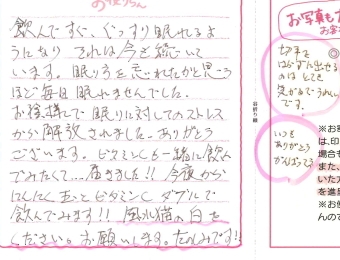 お便りらん
飲んですぐ、ぐっすり眠れるよ
うになり それは今も続いて
います。眠り方を忘れたかと思う
ほど毎日眠れませんでした。
お陰様で眠りに対してのストレス
から解放されました。ありがとう
ございます。ビタミンCも一緒に飲ん
でみたくて...届きました!! 今夜から
にんにく玉とビタミンC ダブルで
飲んでみます!! 風水猫の白を
ください。お願いします。たのしみです!!
切手を
はらずに出せる
のは とても
気がるでうれしい
です。
いつも
ありがとう
がんばってるう
お写真も
お客
◎
※お
は、印
場合も
また、
いた方
を進呈
※お
んので